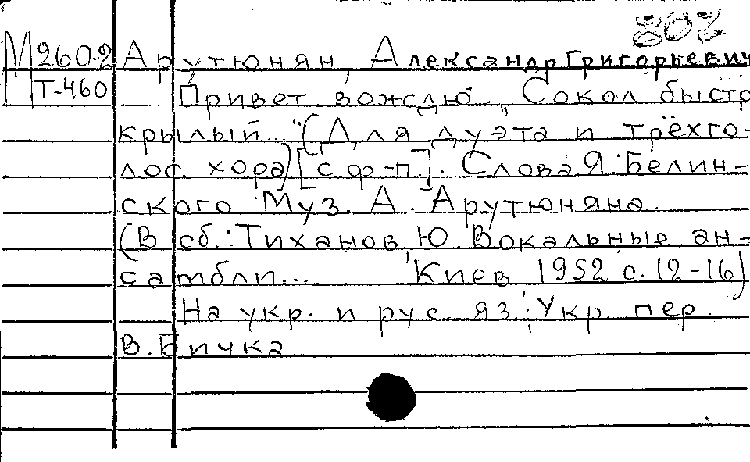 802
М 2602 Арутюнян, Александр Григорьевич
Т-460 Привет вождю. "Сокол быстр
крылый..." (Для дуэта и трёхго-
лос. хора) [с ф-п]. Слова Я. Белин-
ского. Муз. А. Арутюняна.
(В сб.: Тиханов, Ю. Вокальные ан-
самбли... Киев, 1952 с. 12-16)
На укр. и рус. яз. Укр. пер.
В. Бичка